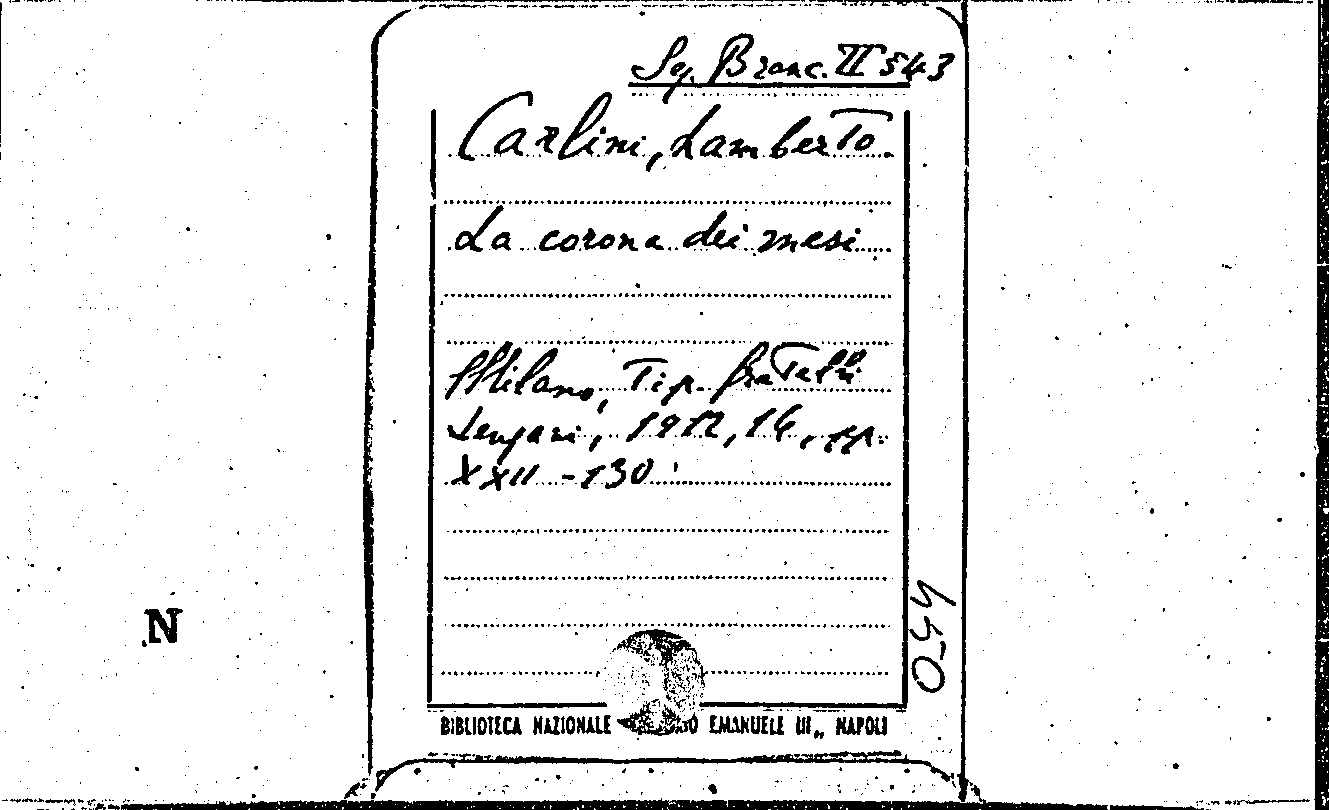 Sq. Branc. II 543
Carlini, Lamberto.
La corona dei mesi
Milano, Tip. fratelli
1912, 16, pp.
XXII - 130
N
BIBLIOTECA NAZIONALE EMANUELE III„ NAPOLI